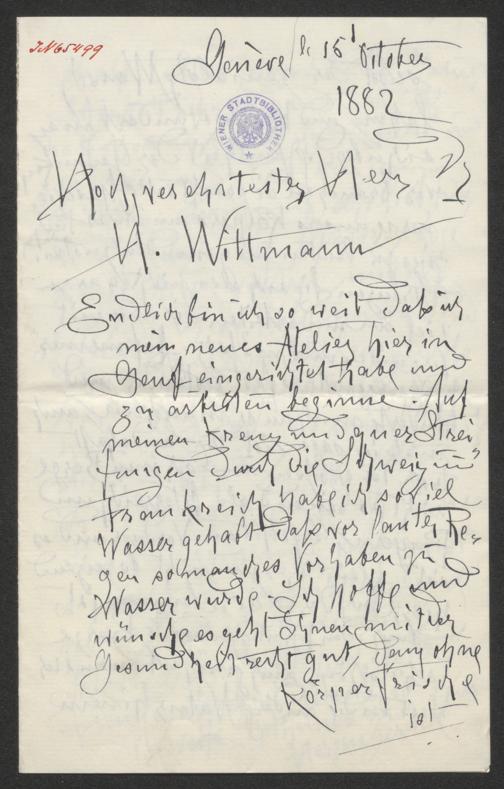 JN 65499
Genève le 15t Oktober
1882
WIENER STADTBIBLIOTHEK
Hochverehrtester Herr
H. Wittmann
Endlich bin ich so weit daß ich
mein neues Atelier hier in
Genf eingerichtet habe und
zu arbeiten beginne. Auf
meinen Kreuz und quer Strei
fungen durch die Schweiz und
Frankreich habe ich so viel
Wasser gehabt daß vor lauter Re-
gen so manches Vorhaben zu
Wasser wurde. Ich hoffe und
wünsche es geht Ihnen mit der
Gesundheit recht gut, denn ohne
Körperfrische
ist